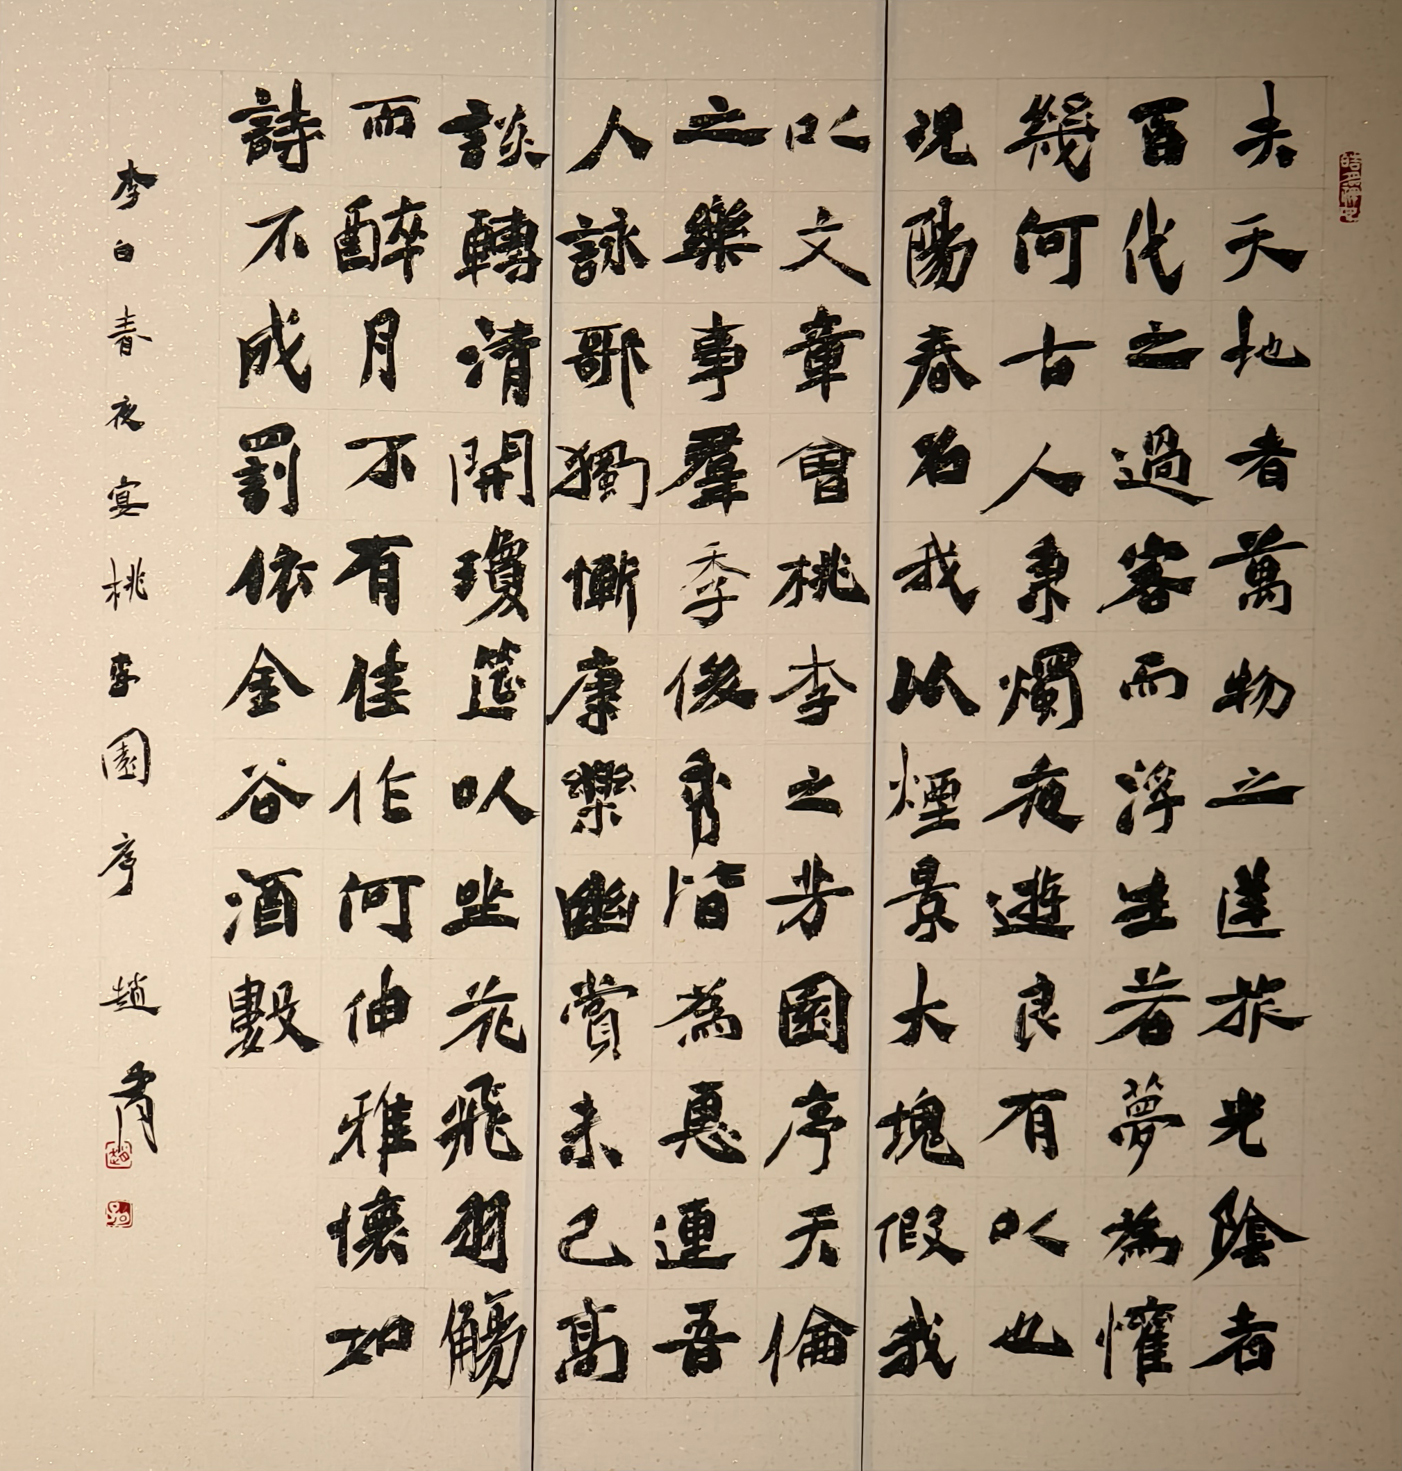 夫天地者萬物之逆旅光陰者
百代之過客而浮生若夢為懽
幾何古人秉燭夜遊良有以也
況陽春召我以煙景大塊假我
以文章會桃李之芳園序天倫
之樂事羣季俊秀皆為惠連吾
人詠歌獨慚康樂幽賞未已高
談轉清開瓊筵以坐花飛羽觴
而醉月不有佳作何伸雅懷如
詩不成罰依金谷酒數
李白春夜宴桃李園序 趙